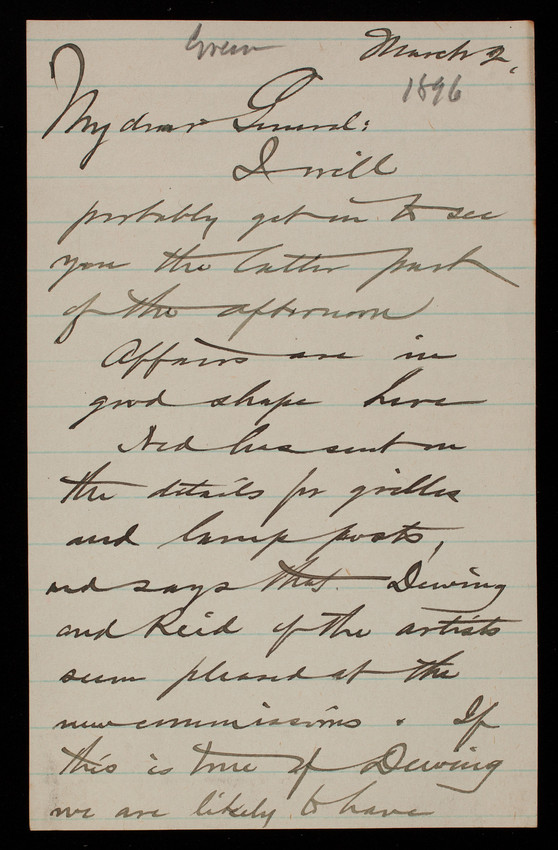 Green
March 2,
1896
My dear General:
I will
probably get in to see
you the latter part
of the afternoon
Affairs are in
good shape here
Ned has sent on
the details for grilles
and lamp posts,
and says that Dewing
and Reid of the artists
seem pleased at the
new commissions. If
this is true of Dewing
we are likely to have